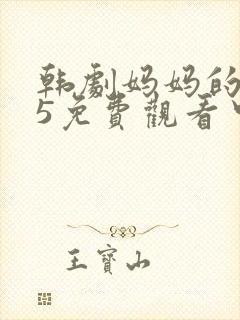 韩劇妈妈的
5免費觀看
王寶山